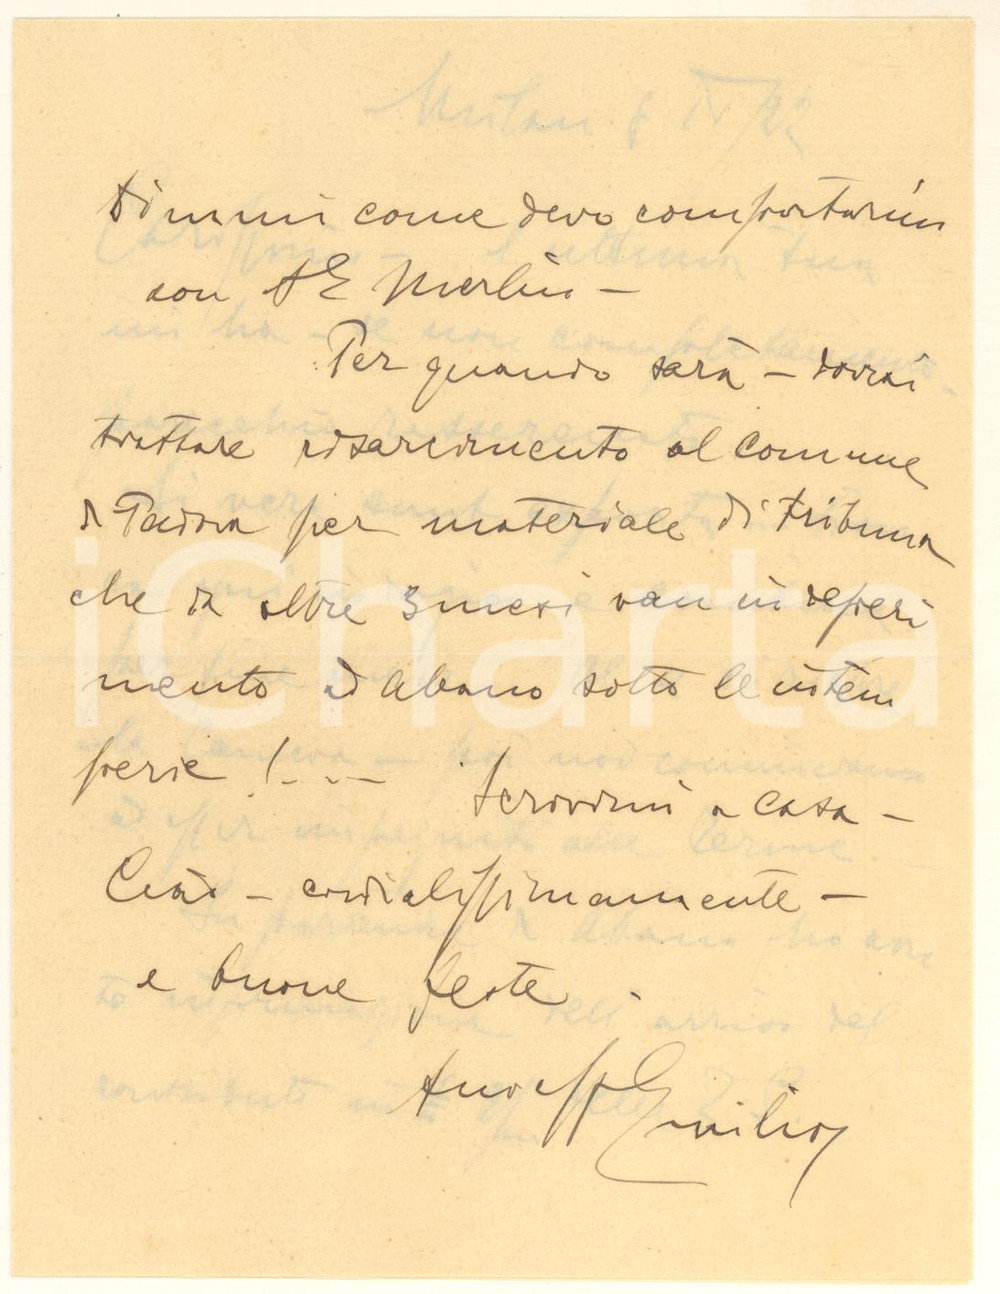 Dimmi come devo comportarmi
con S E Merlin -
Per quando sarà - dovrai
trattare risarcimento al comune
di Padova per materiale di tribuna
che da oltre 3 mesi van in deperi
mento ad Abano sotto le intem
perie !...
Scrivimi a casa -
Ciao - cordialissimamente -
e buone feste.
Emilio
iCharta